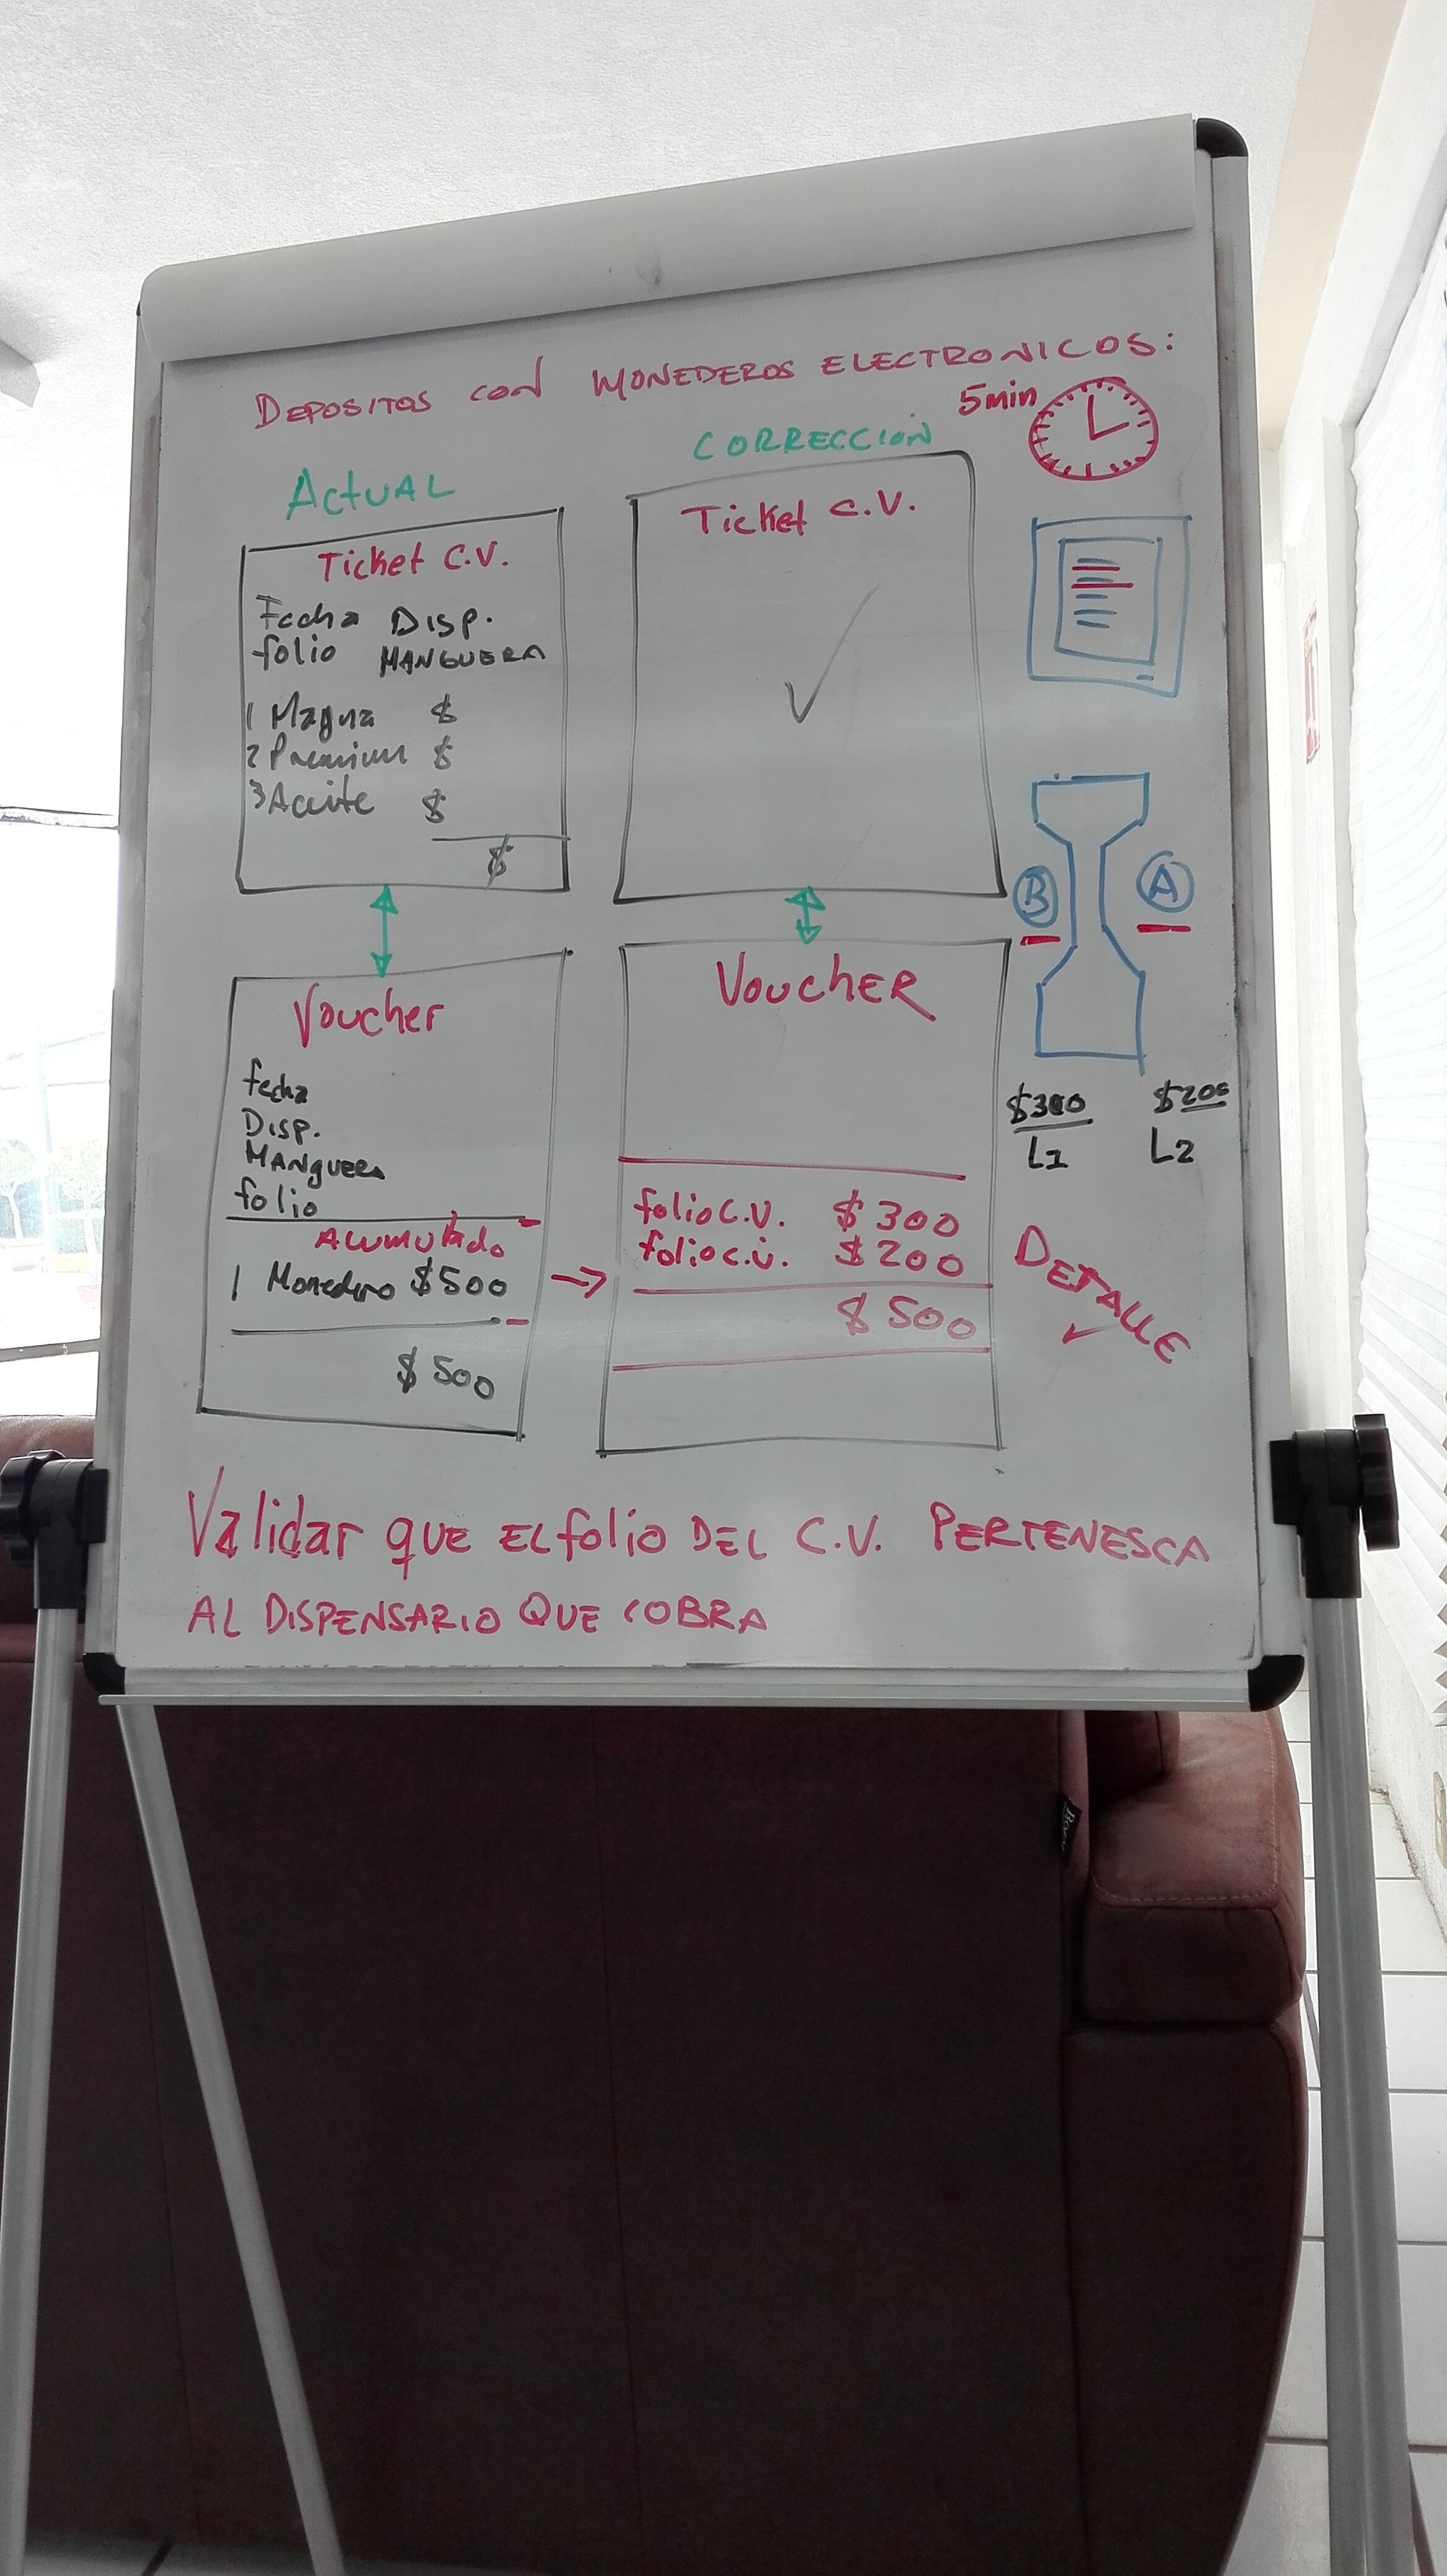 DEPOSITOS CON MONEDEROS ELECTRONICOS:
5min
ACTUAL
Ticket C.V.
Fecha Disp.
folio MANGUERA
1 Magna $
2 Premium $
3 Aceite $
$
Voucher
fecha
Disp.
MANguera
folio
Acumulado
1 Monedero $500
$500
CORRECCION
Ticket C.V.
VOUCHER
folio C.V. $300
folio C.V. $200
$500
B A
$300 $200
L1 L2
DETALLE
Validar que EL folio DEL C.V. PERTENESCA
AL DISPENSARIO QUE COBRA